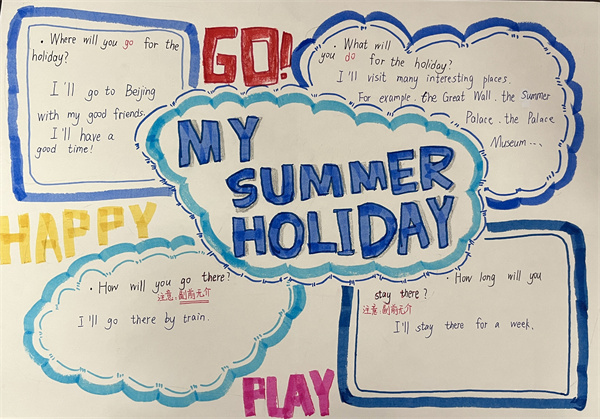 · Where will you go for the
holiday?
I'll go to Beijing
with my good friends.
I'll have a
good time!
GO!
· What will
you do for the holiday?
I'll visit many interesting places.
For example. the Great Wall. the Summer
Palace. the Palace
Museum...
MY
SUMMER
HOLIDAY
HAPPY
· How will you go there?
注意:副前无介
I'll go there by train.
· How long will you
stay there?
注意:副前无介
I'll stay there for a week.
PLAY